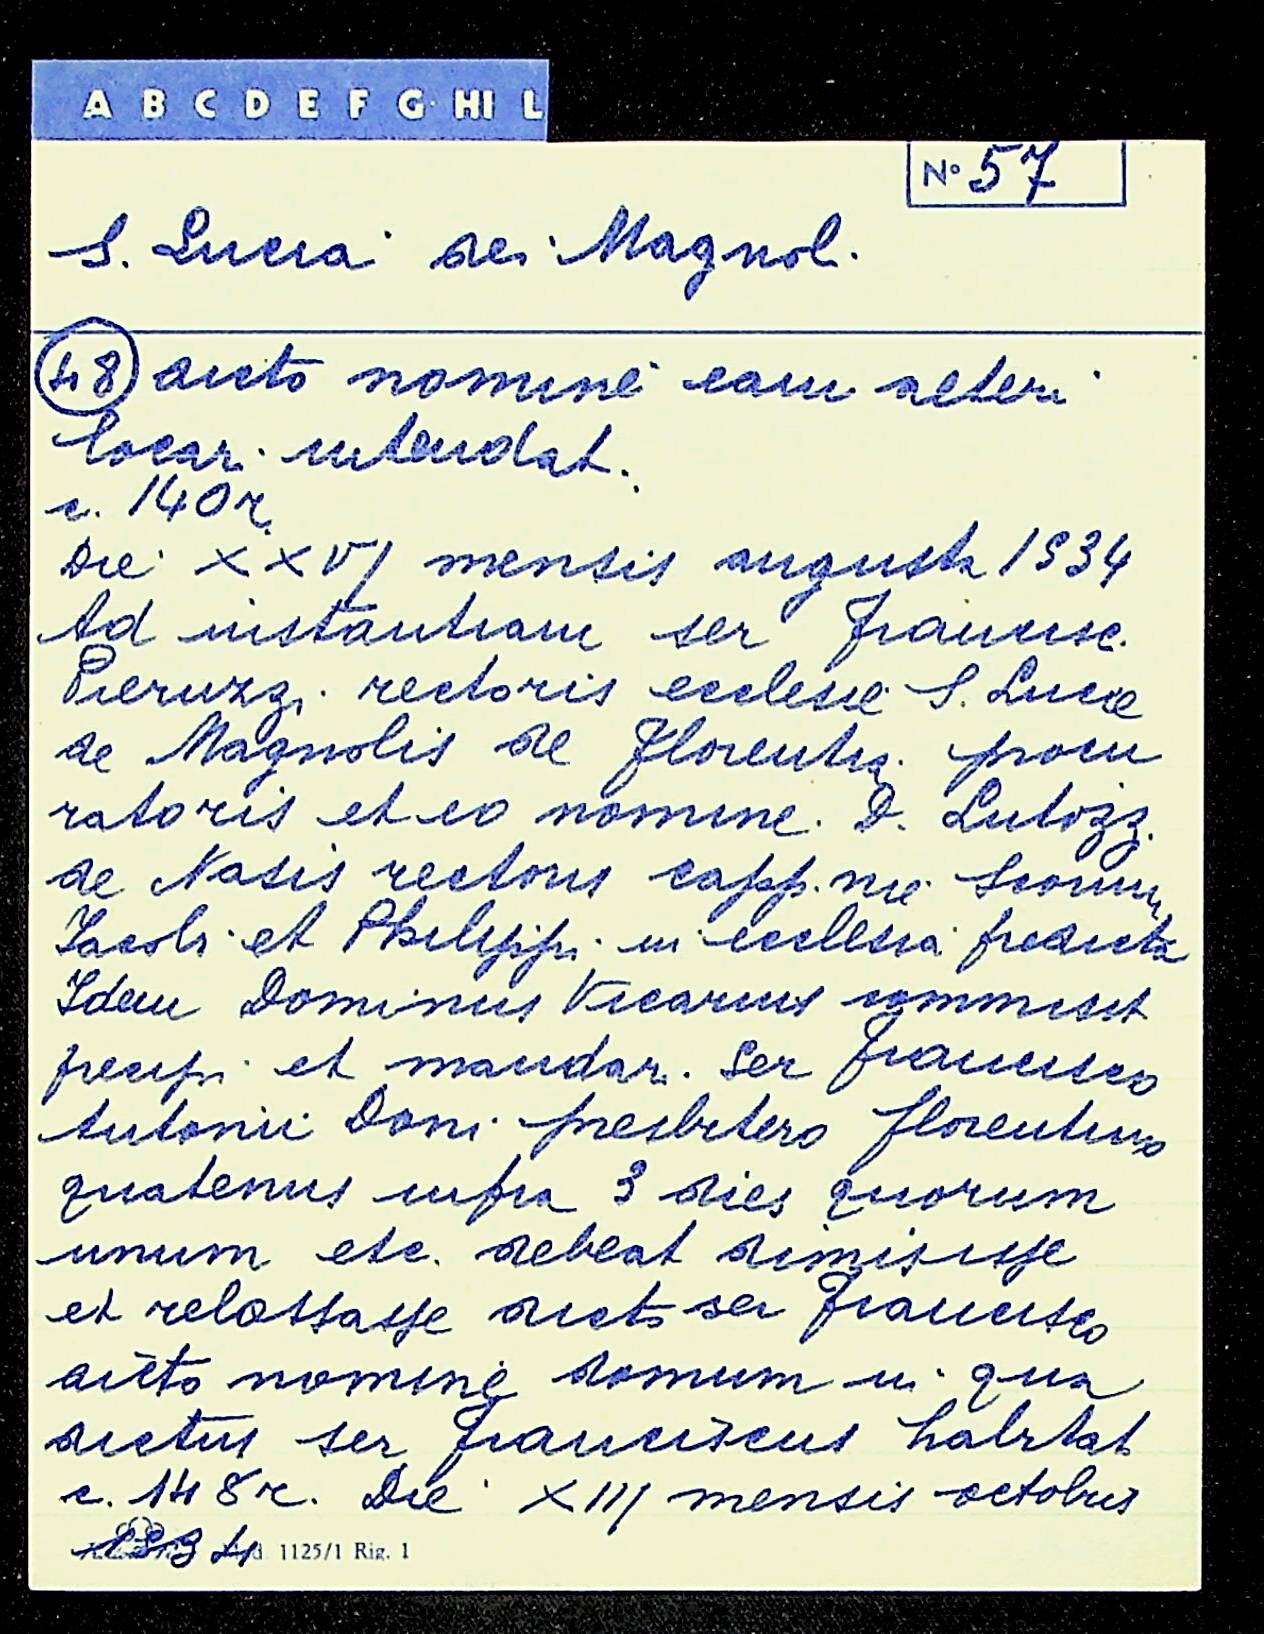 A B C D E F G HI L
N° 57
S. Lucia dei Magnol.
48 dicto nomine eam alteri
locari intendat.
c. 140r
Die XXVI mensis augusti 1534
Ad instantiam ser Francisc.
Pieruzzi rectoris ecclesie S. Lucie
de Magnolis de Florentia procu
ratoris et eo nomine D. Lutozzi
de Nasis rectoris capp. nie Scorum
Iacobi et Philippi in ecclesia predicta
Idem Dominus Vicarius commisit
precipi et mandari Ser Francisco
Antonii Doni presbitero florentino
quatenus infra 3 dies quorum
unum etc. debeat dimisisse
et relassasse dicto ser Francisco
dicto nomine domum in qua
dictus ser Franciscus habitat
c. 148r. Die XIII mensis octobris
1534
Mod. 1125/1 Rig. 1